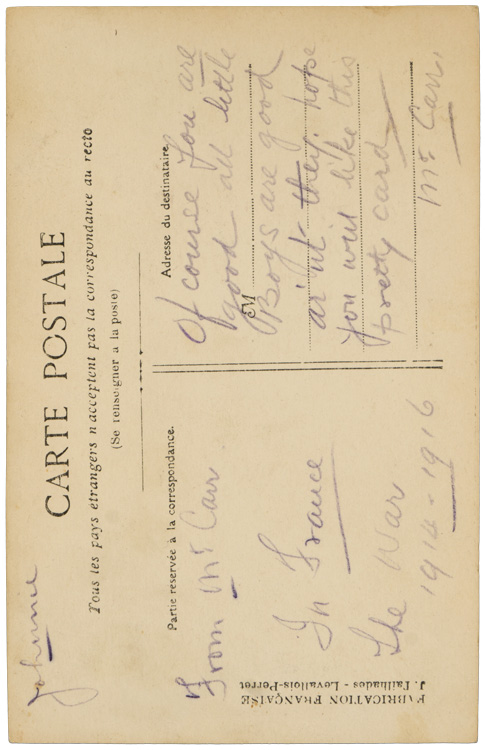 Johnnie
CARTE POSTALE
Tous les pays étrangers n'acceptent pas la correspondance au recto
(Se renseigner à la poste)
Partie reservée à la correspondance.
From Mr Carr
In France
The War
1914-1916
Adresse du destinataire,
Of course you are
good all little
M
Boys are good
ar'nt they, hope
you will like this
pretty card
Mr Carr.
FABRICATION FRANÇAISE
J. Tailhades - Levallois-Perret